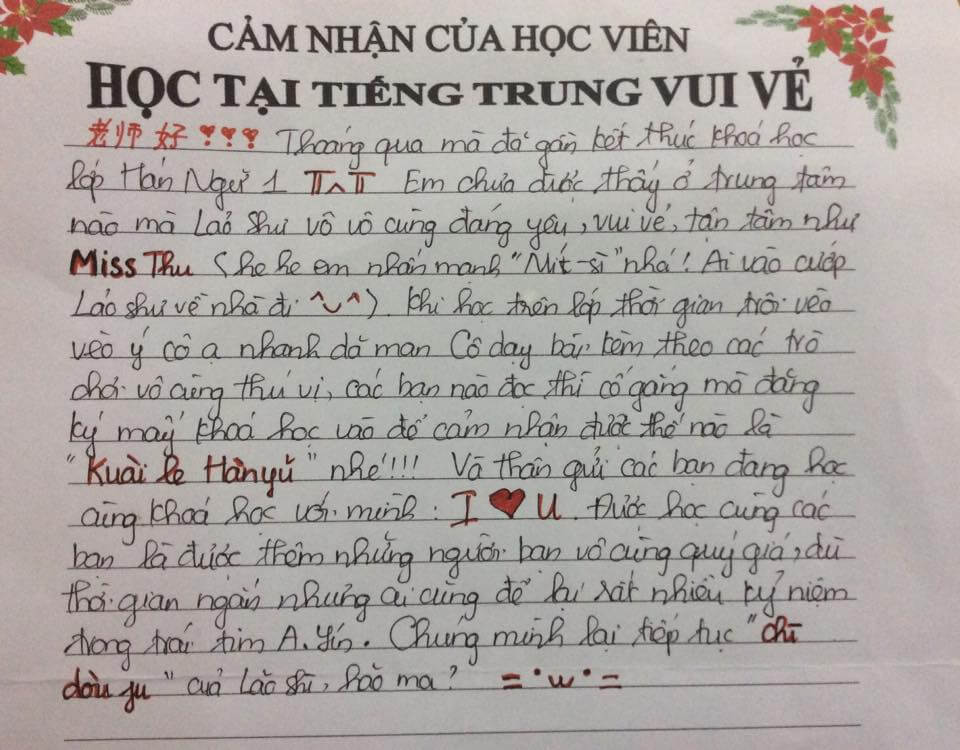 CẢM NHẬN CỦA HỌC VIÊN
HỌC TẠI TIẾNG TRUNG VUI VẺ
老师好 ❣❣❣ Thoáng qua mà đã gần kết thúc khoá học
lớp Hán Ngữ 1 TT^TT Em chưa được thấy ở trung tâm
nào mà Lảo sư vô vô cùng đáng yêu, vui vẻ, tận tâm như
Miss Thu (he he em nhấn mạnh "Mít-sì" nhá! Ai vào cướp
Lảo sư về nhà đi ^◡^). Khi học trên lớp thời gian trôi vèo
vèo ý cô ạ nhanh dã man Cô dạy bài, kèm theo các trò
chơi vô cùng thú vị, các bạn nào đọc thì cố gắng mà đăng
ký mấy khoá học vào để cảm nhận được thế nào là
"Kuài le Hànyǔ" nhé!!! Và thân gửi các bạn đang học
cùng khoá học với mình: I ♥ U. Được học cùng các
bạn là được thêm những người bạn vô cùng quý giá, dù
thời gian ngắn nhưng ai cũng để lại rất nhiều kỷ niệm
trong trái tim A.Yín. Chúng mình lại tiếp tục "chī
dòu fu" cuả Lǎo shī, hǎo ma? =•w•=